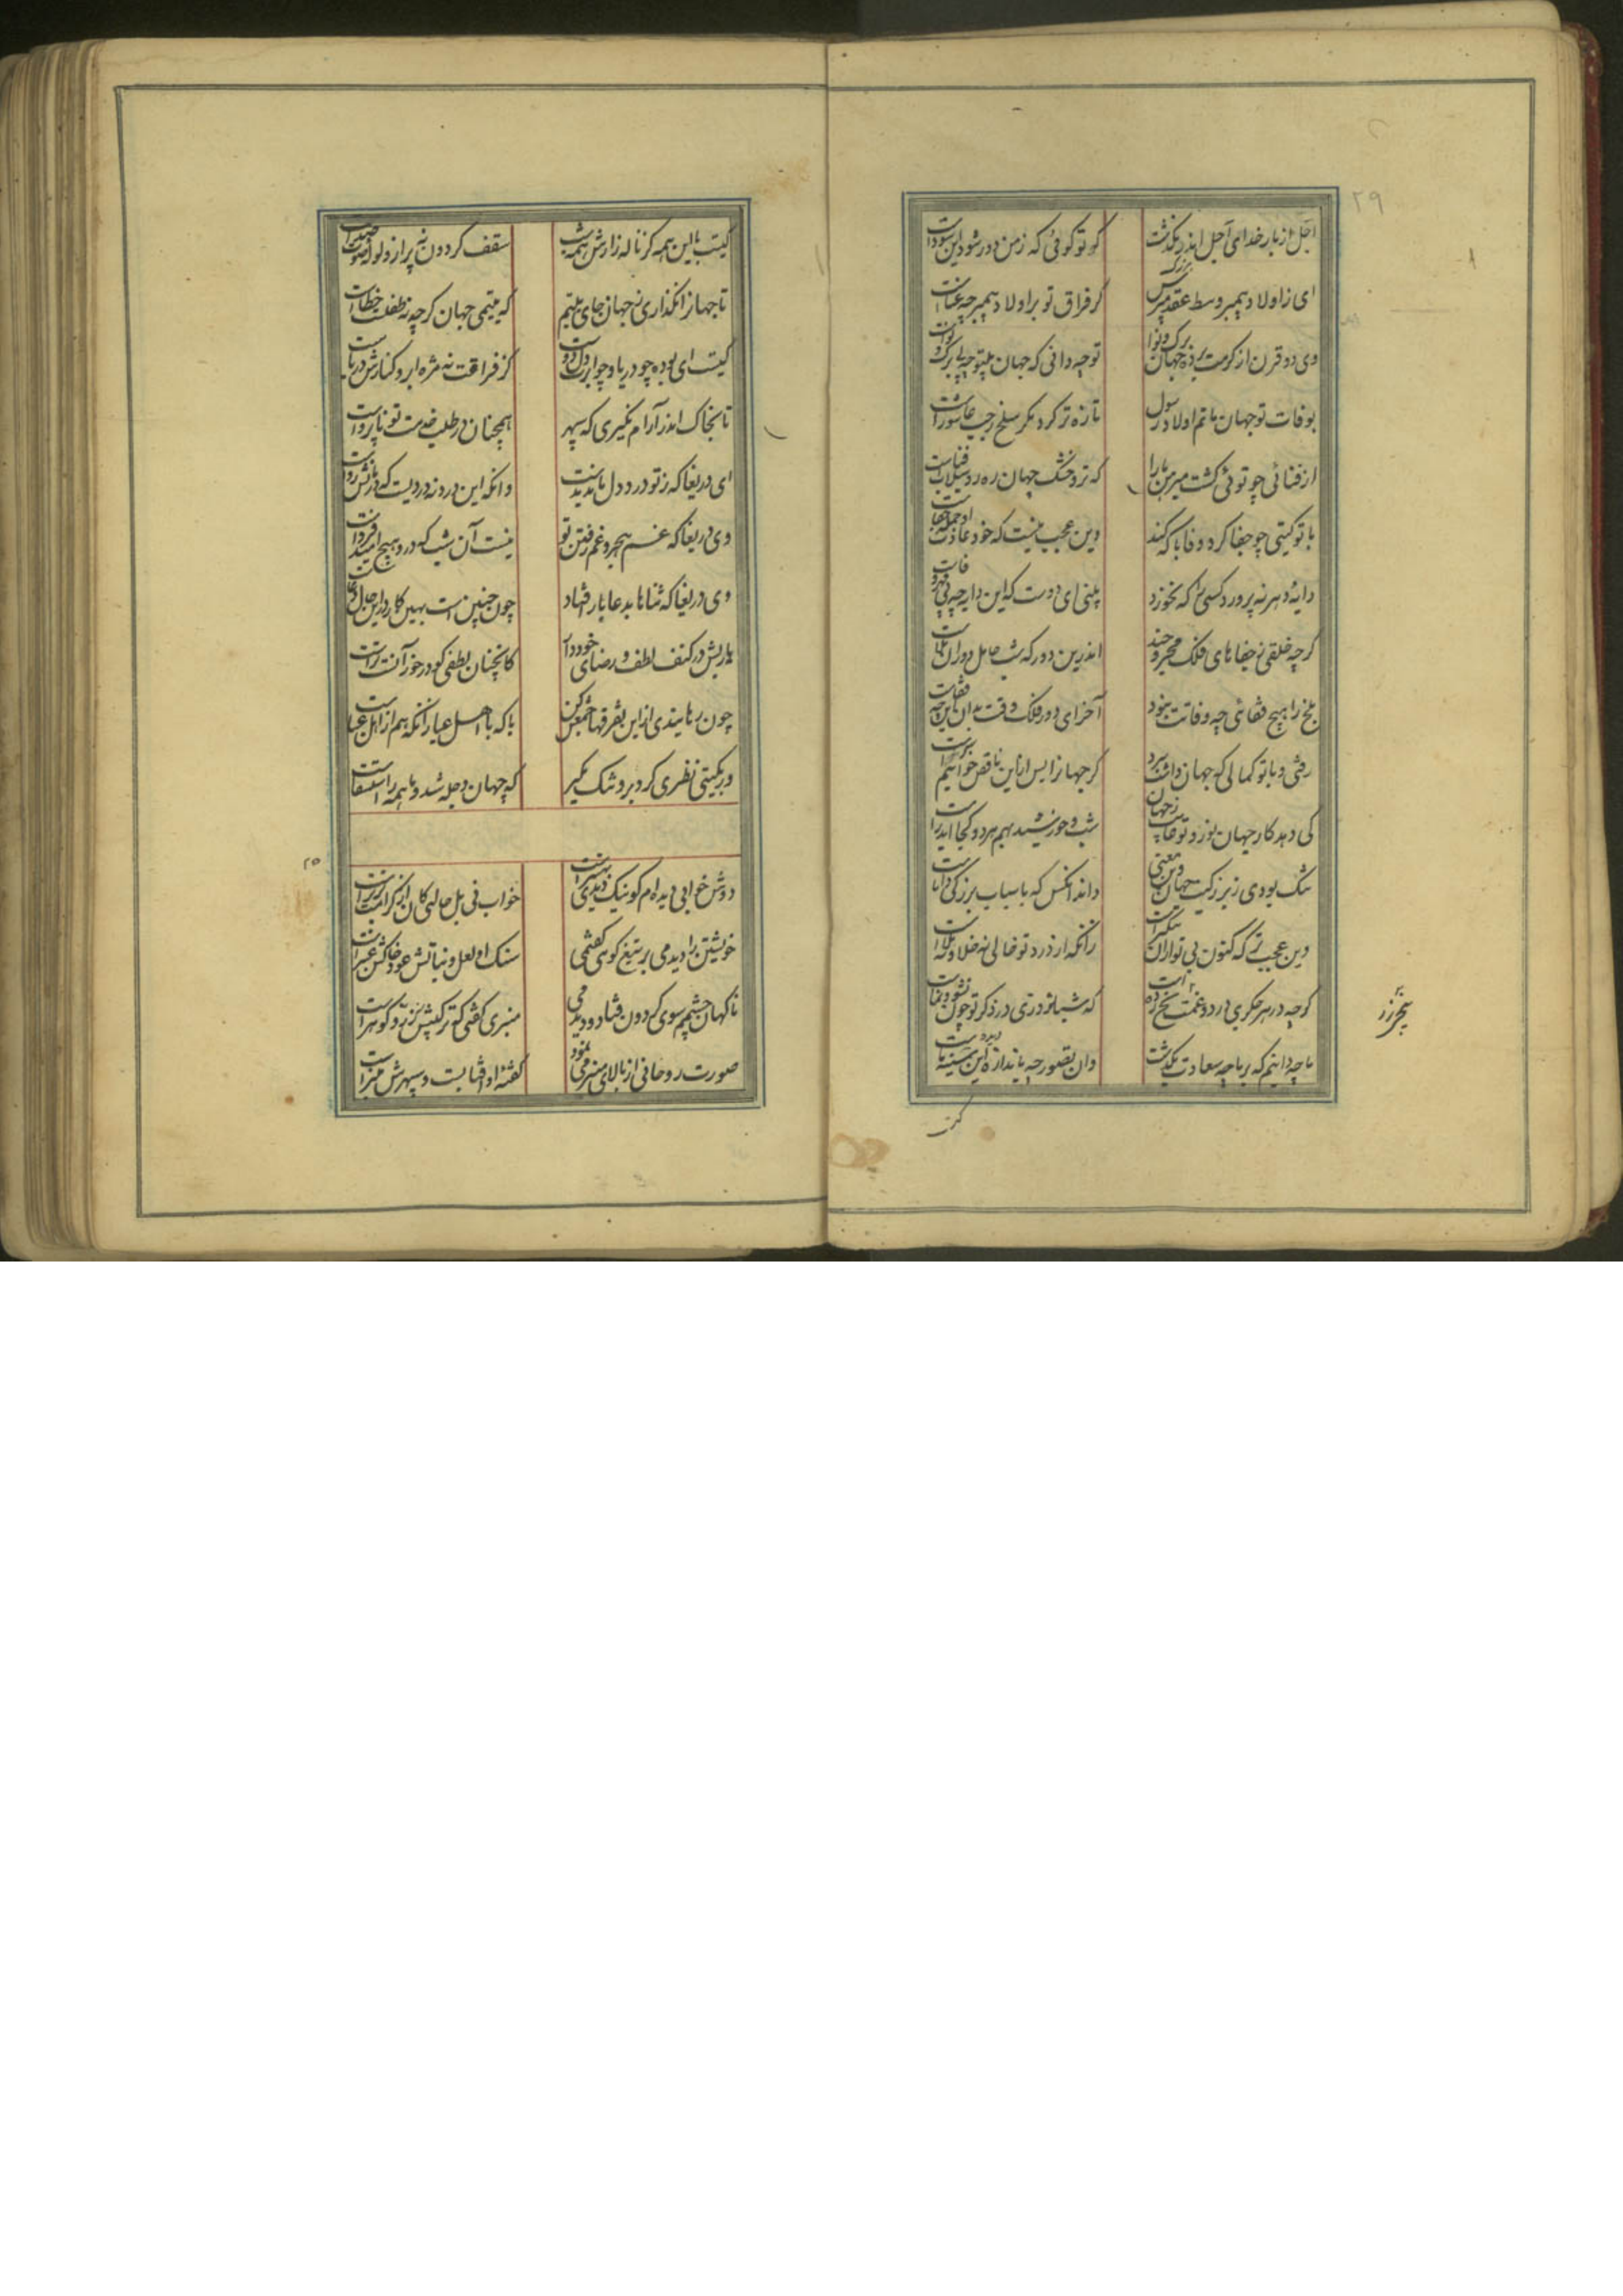 ۲۹
اجل از بار خدای اجل اندر نگذشت گر تو گوئی که ز من در شود این سوداست
ای ز اولاد پیمبر وسط عقد مپرس کز فراق تو بر اولاد پیمبر چه عناست
وی دو قرن از کرمت برده جهان برگ و نوا تو چه دانی که جهان بیتو چه بی برگ و نواست
بوفات تو جهان ماتم اولاد رسول تازه تر کرد مگر سلخ رجب عاشوراست
از فنائی چو توئی گشت مبرهن ما را که تر و خشک جهان رهرو سیلاب فناست
با تو گیتی چو جفا کرد وفا با که کند وین عجب نیست که خود عادت او جمله جفاست
دایه دهر نپرورد کسی را که نخورد بینی ای دوست که این دایه چه بی مهر و وفاست
گرچه خلقی ز جفاهای فلک مجروحند اندرین دور که شب حامل دوران بلاست
بلخ را هیچ قفائی چو وفاتت نبود آخر ای دور فلک وقت بدان این چه قفاست
رفتی و با تو کمالی که جهان داشت ببرد گر جهان را پس ازین ناقص خوانیم سزاست
کی دهد کار جهان نور و تو غایب ز جهان شب و خورشید بهم هر دو کجا آید راست
تنگ بودی ز بزرگیت جهان وین معنی داند آنکس که باسباب بزرگی داناست
وین عجبتر که کنون بی تو از آن تنگتر است زانکه از درد تو خالی نه خلا و نه ملاست
گرچه در هر جگری درد و غمت بیخ زده است که شبانروزی در ذکر تو چون نشو و نماست
ما چه دانیم که بر ما چه سعادت بگذشت وان تصور چه باندازه این سینه ماست
گیت
گیتی این همه کز ناله زارش همه شب سقف گردون نه پر از ولوله صوت و صداست
تا جهان را نگذاری نه جهان جای یتیم که یتیمی جهان گرچه نه طفلست خطاست
کیست ای بوده چو دریا و چو ابرت دل و دست کز فراقت نه مژه ابر و کنارش دریاست
تا بخاک اندر آرام نگیری که سپهر همچنان در طلب خدمت تو ناپرواست
ای دریغا که ز تو درد دل ماند بدست وانگه این درد نه دردیست که درمانش دواست
وی دریغا که غم هجر و غم رفتن تو نیست آن شب که درو هیچ امید فرداست
وی دریغا که ثناها بدعا باز فتاد چون چنین است بهین کار در این حال دعاست
یا ربش در کنف لطف و رضای خود دار کانچنان لطفی کو در خور آنست تراست
چون رهانیدی ازین تفرقها جمعش کن با که با اهل عبا زانکه هم از اهل عباست
ور بگیتی نظری کرد برو تنگ مگیر که جهان دجله شد و با همه را استسقاست
۲۵
دوش خوابی دیده ام گو نیک دیدی نیک است خواب نی بل حالتی کان از کرامت برتر است
خویشتن را دیدمی بر تیغ کوهی گفتمی سنگ او لعل و نباتش عود و خاکش عنبر است
ناگهان چشمم سوی گردون فتاد و دیدمی منبری گفتی که ترکیبش ز زر و گوهر است
صورت روحانی از بالای منبر می نمود گفتی او آفتابست و سپهرش منبر است